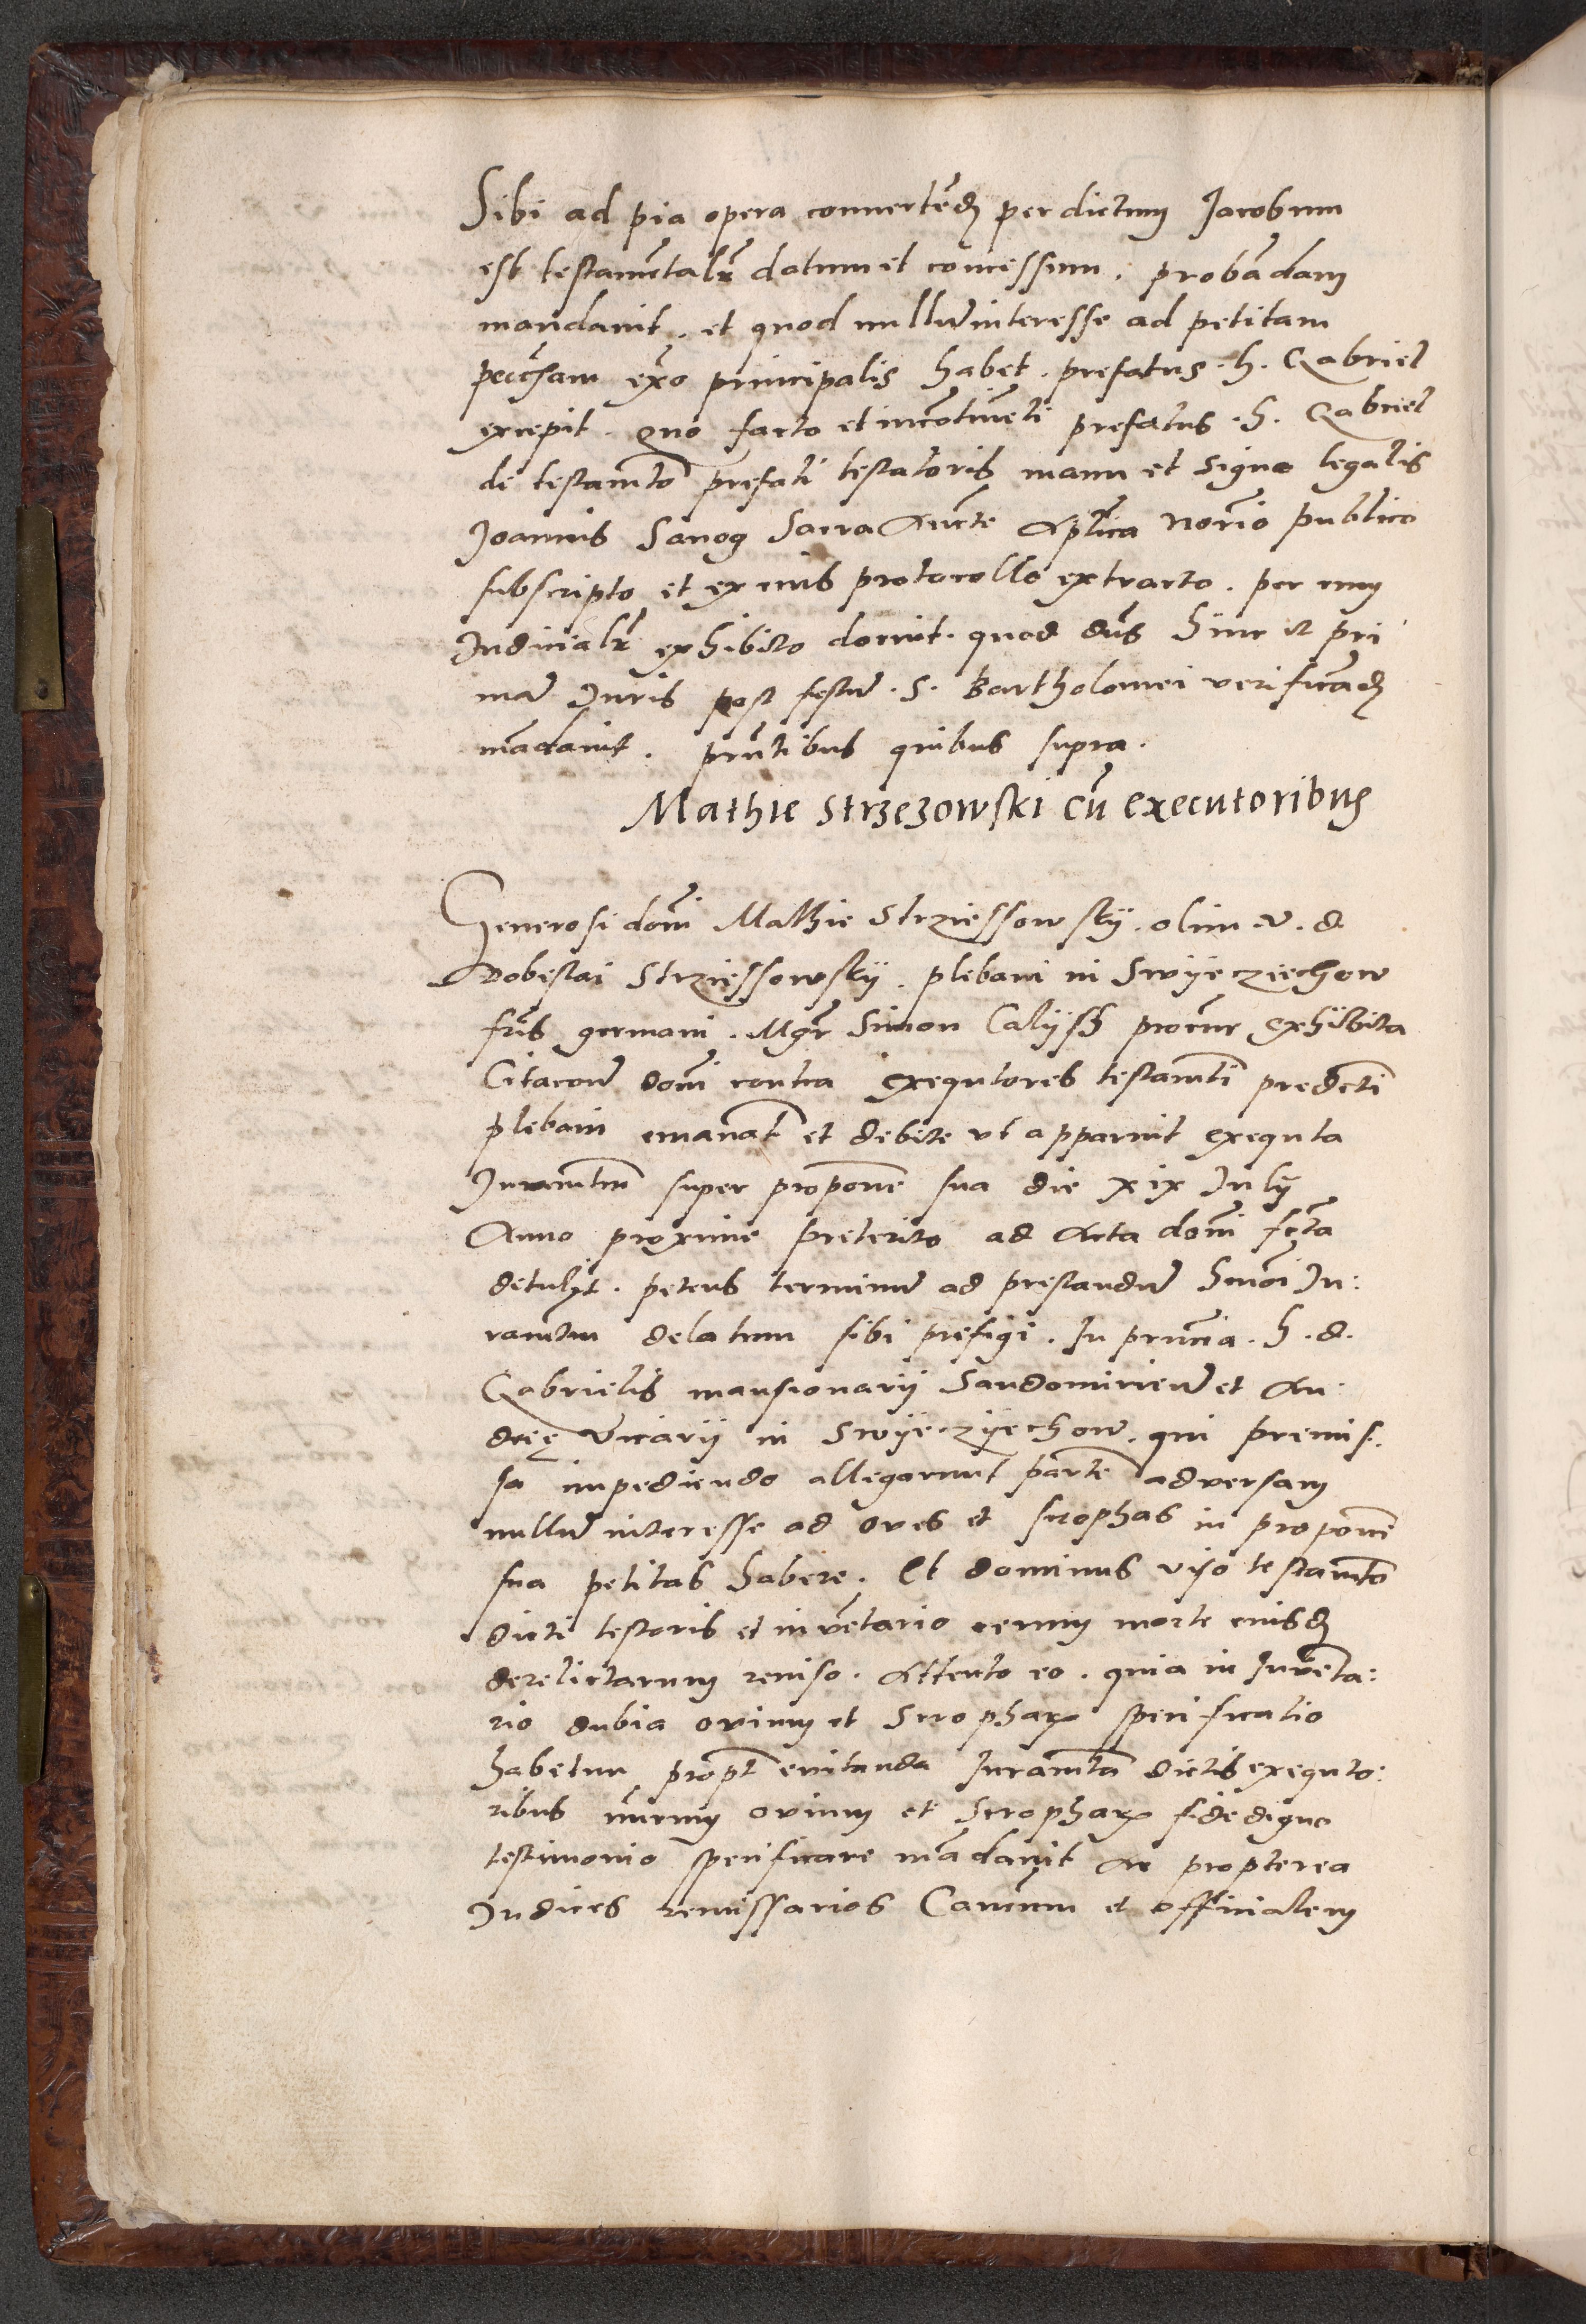 Sibi ad pia opera conuertēdā per dictum Jacobum
est testamētalr̄ datum et concessum . probādam
mandauit . et quod nullū interesse ad petitam
pecc̄sam exo principalis habet . prefatus . h . Gabriel
excepit . Quo facto et incōtinēti prefatus . h . Gabriel
de testamto prefati testatoris manu et signo legalis
Joannis Sanog Sacra Aucte Aplica norio publico
subscripto et ex eius protocollo extracto . per eum
Judicialr̄ exhibito docuit . quod dns hinc ad pri
mā Juris post festū . S . Bartholomei verificādā
mādauit . prn̄tibus quibus supra .
Mathie Strzezowski cū executoribus
Generosi domi Mathie Strziessowskij . olim . v . d
Dobeslai Strziessowskij . plebani in Swijeczijechow
fris germani . Mgr Simon Calijsh procur exhibita
Citacone domi contra exequtores testamti predicti
plebani emanat et debite vt apparuit exequta
Juramtm super propone sua die xix July
Anno proxime preterito ad Acta domi fcta
detulyt . petens terminū ad prestandū hmoi Ju:
ramtm delatum sibi prefigi . In prn̄cia . h . d .
Gabrielis mansionarij Sandomirien et An:
dreę vicarij in Swije.zijechow . qui premis.
sa impediendo allegarunt parte aduersam
nullū interesse ad oues et scrophas in propone
sua petitas habere . Et dominus viso testamto
dicti testoris et inuētario rerum morte eiusd
derelictarum reuiso . Attento eo . quia in Inuenta:
rio dubia ouium et Scrophar specificatio
habetur propt euitanda Juramta dictis exequto:
ribus nūrum ouium et Scrophar fidedigno
testimonio specificare mādauit Ac propterea
Judices remissarios Canonum et officialem